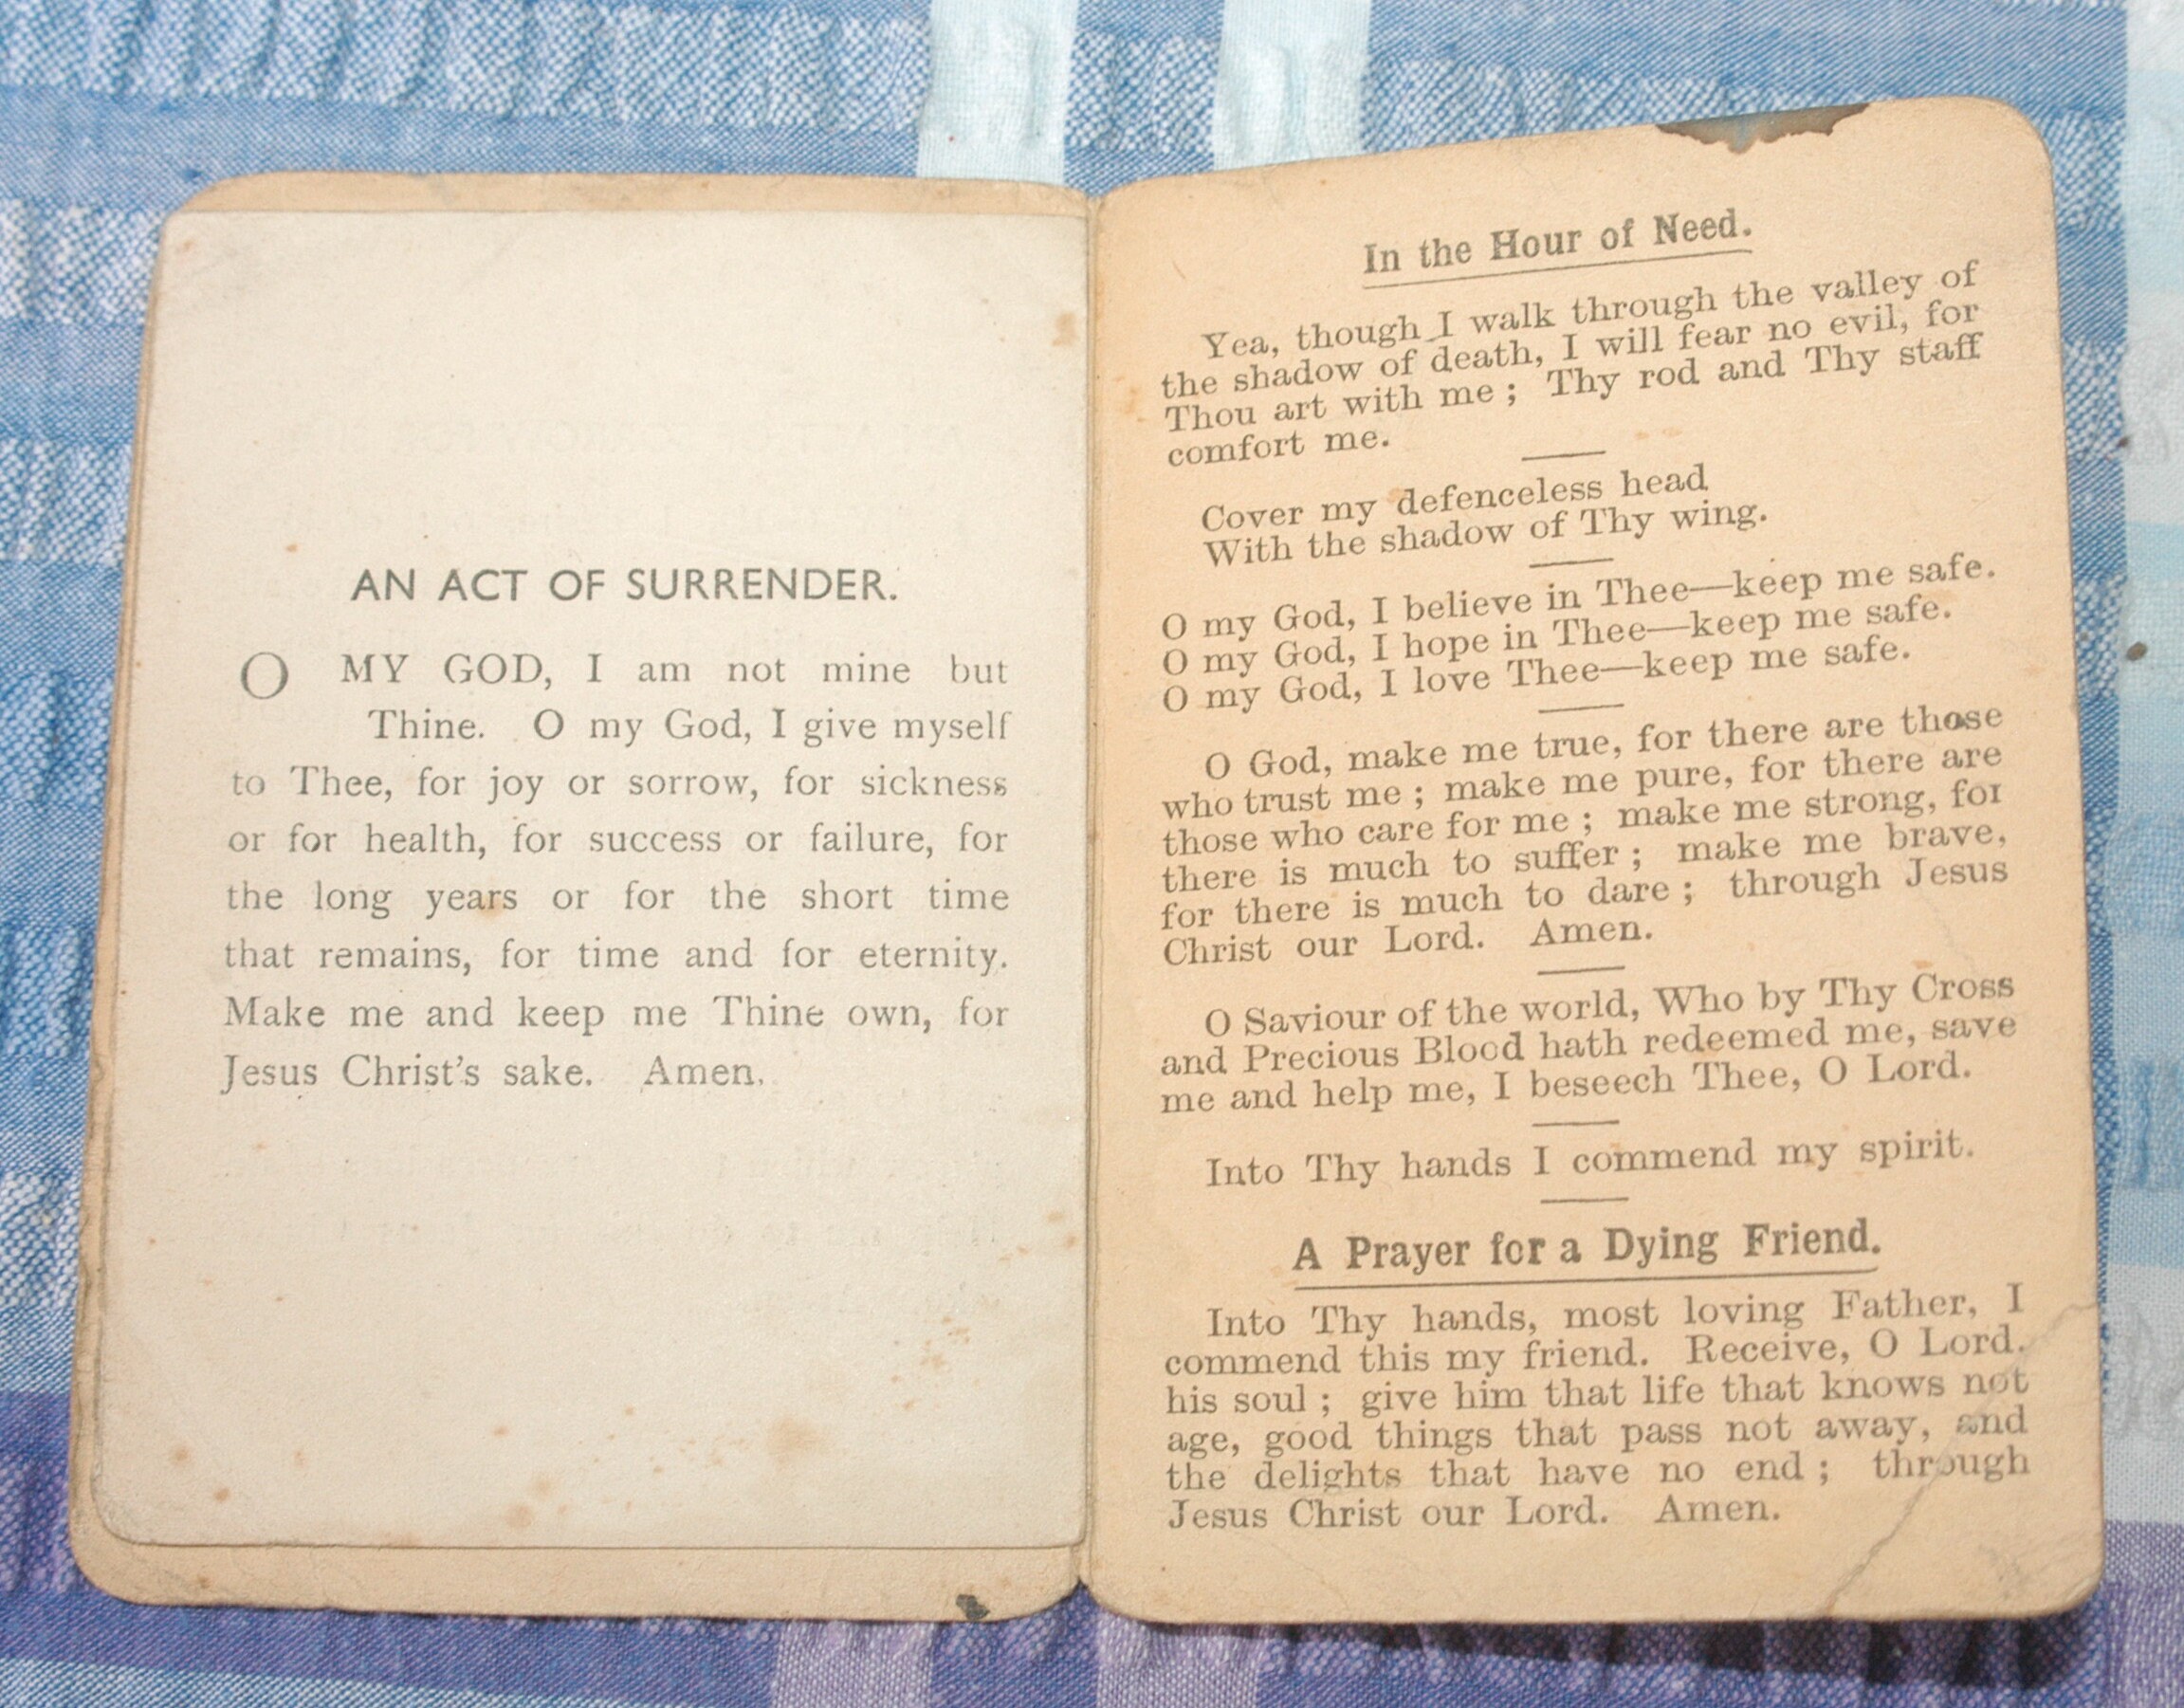 AN ACT OF SURRENDER.
O MY GOD, I am not mine but
Thine. O my God, I give myself
to Thee, for joy or sorrow, for sickness
or for health, for success or failure, for
the long years or for the short time
that remains, for time and for eternity.
Make me and keep me Thine own, for
Jesus Christ's sake. Amen.
In the Hour of Need.
Yea, though I walk through the valley of
the shadow of death, I will fear no evil, for
Thou art with me ; Thy rod and Thy staff
comfort me.
Cover my defenceless head
With the shadow of Thy wing.
O my God, I believe in Thee—keep me safe.
O my God, I hope in Thee—keep me safe.
O my God, I love Thee—keep me safe.
O God, make me true, for there are those
who trust me ; make me pure, for there are
those who care for me ; make me strong, for
there is much to suffer ; make me brave,
for there is much to dare ; through Jesus
Christ our Lord. Amen.
O Saviour of the world, Who by Thy Cross
and Precious Blood hath redeemed me, save
me and help me, I beseech Thee, O Lord.
Into Thy hands I commend my spirit.
A Prayer for a Dying Friend.
Into Thy hands, most loving Father, I
commend this my friend. Receive, O Lord,
his soul ; give him that life that knows not
age, good things that pass not away, and
the delights that have no end ; through
Jesus Christ our Lord. Amen.